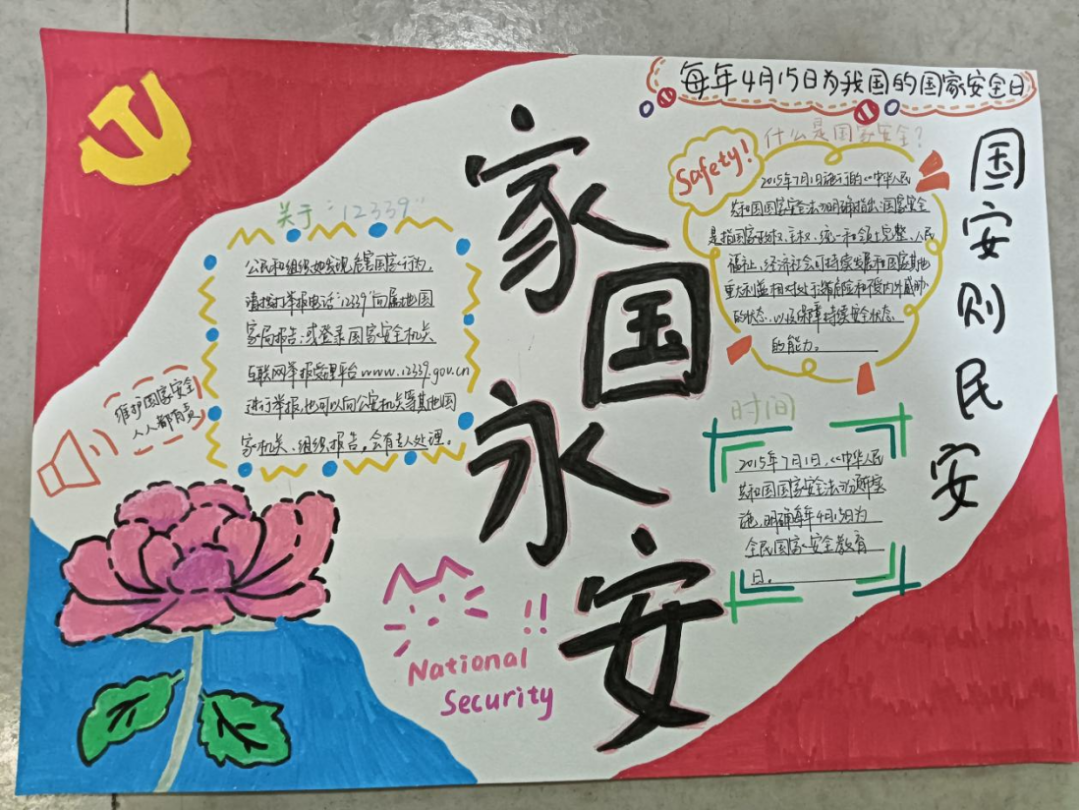 每年4月15日为我国的国家安全日
家国永安
国安则民安
关于"12339"
公民和组织如发现危害国家行为,
请拨打举报电话"12339"向属地国
家局报告;或登录国家安全机关
互联网举报受理平台www.12339.gov.cn
进行举报,也可以向公安机关等其他国
家机关、组织报告,会有专人处理。
维护国家安全
人人都有责
Safety!
什么是国家安全?
2015年7月1日施行的《中华人民
共和国国家安全法》明确指出:国家安全
是指国家政权、主权、统一和领土完整、人民
福祉、经济社会可持续发展和国家其他
重大利益相对处于没有危险和受内外威胁
的状态,以及保障持续安全状态
的能力。
时间
2015年7月1日,《中华人民
共和国国家安全法》颁布实
施,明确每年4月15日为
全民国家安全教育
日。
!!
National
Security